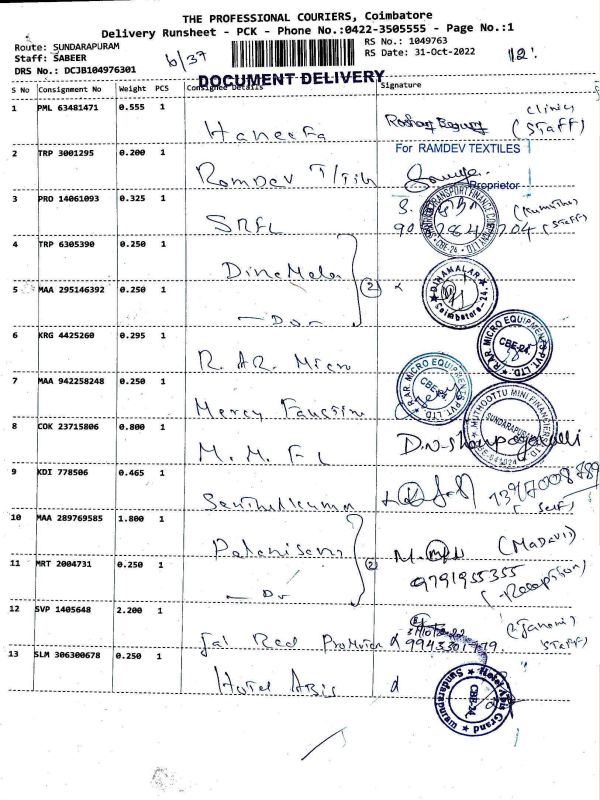 THE PROFESSIONAL COURIERS, Coimbatore
Delivery Runsheet - PCK - Phone No.:0422-3505555 - Page No.:1
Route: SUNDARAPURAM
RS No.: 1049763
Staff: SABEER
b/37
RS Date: 31-Oct-2022
12
DRS No.: DCJB104976301
DOCUMENT DELIVERY
S No Consignment No Weight PCS Consignee Details Signature
1 PML 63481471 0.555 1 Haneefa Clinic (Staff)
2 TRP 3001295 0.200 1 Ramdev T/Tile For RAMDEV TEXTILES
Proprietor
3 PRO 14061093 0.325 1 SRFL
4 TRP 6305390 0.250 1 DinaMalar
5 MAA 295146392 0.250 1 - Do - 2 DINAMALAR Coimbatore-24
6 KRG 4425260 0.295 1 R.AR. Micro R.AR. MICRO EQUIPMENTS PVT. LTD. CBE-24
7 MAA 942258248 0.250 1 Mercy Faustin R.AR. MICRO EQUIPMENTS PVT. LTD. CBE-24
8 COK 23715806 0.800 1 M.M.FL MUTHOOTTU MINI FINANCIERS LTD SUNDARAPURAM
9 KDI 778506 0.465 1 Senthilkumar (Self)
10 MAA 289769585 1.800 1 Palanisamy (Madavi)
11 MRT 2004731 0.250 1 - Do 2 9791955355 (Reception)
12 SVP 1405648 2.200 1 Jai Red Promoter 9943301979 Staff)
13 SLM 306300678 0.250 1 Hotel Abis Hotel Abis Grand Sundarapuram CBE-24